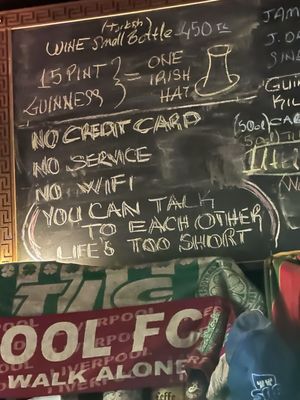 (Turkish)
WINE Small Bottle 450 TL
15 PINT
GUINNESS
} = ONE
IRISH
HAT
NO CREDIT CARD
NO SERVICE
NO WIFI
(YOU CAN TALK
TO EACH OTHER
LIFE'S TOO SHORT
JAM
J.D
SIN
GUIN
KIL
(50cl) CAR
LIVERPOOL
OOL FC
WALK ALONE
LIVERPOOL